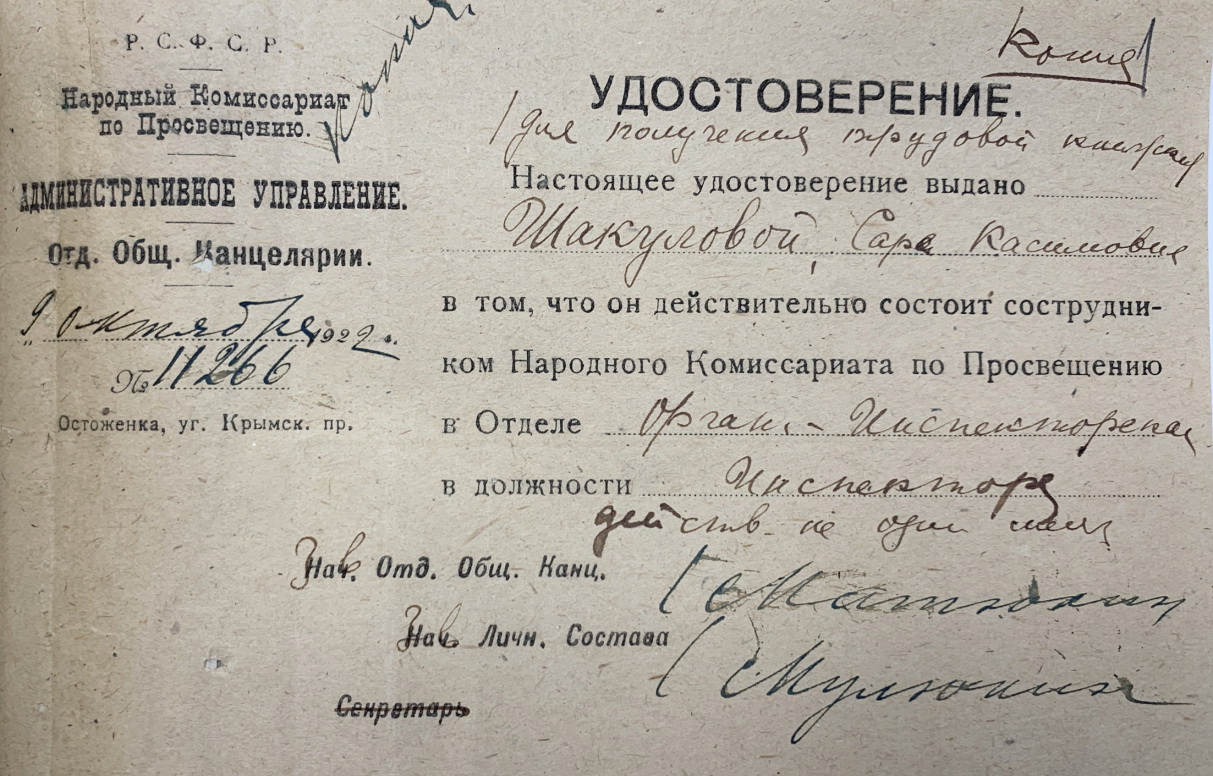 Р. С. Ф. С. Р.
Народный Комиссариат
по Просвещению.
АДМИНИСТРАТИВНОЕ УПРАВЛЕНИЕ.
Отд. Общ. Канцелярии.
„9 октября 1922 г.
№ 11266
Остоженка, уг. Крымск. пр.
Копия
Копия
УДОСТОВЕРЕНИЕ.
/для получения трудовой книжки
Настоящее удостоверение выдано
Шакуловой, Саре Касимовне
в том, что он действительно состоит сотрудни-
ком Народного Комиссариата по Просвещению
в Отделе Орган. - Инспекторском
в должности Инспектора
действ. на один месяц
Зав. Отд. Общ. Канц. (Матюхин
Зав. Личн. Состава (Мулюкин
Секретарь